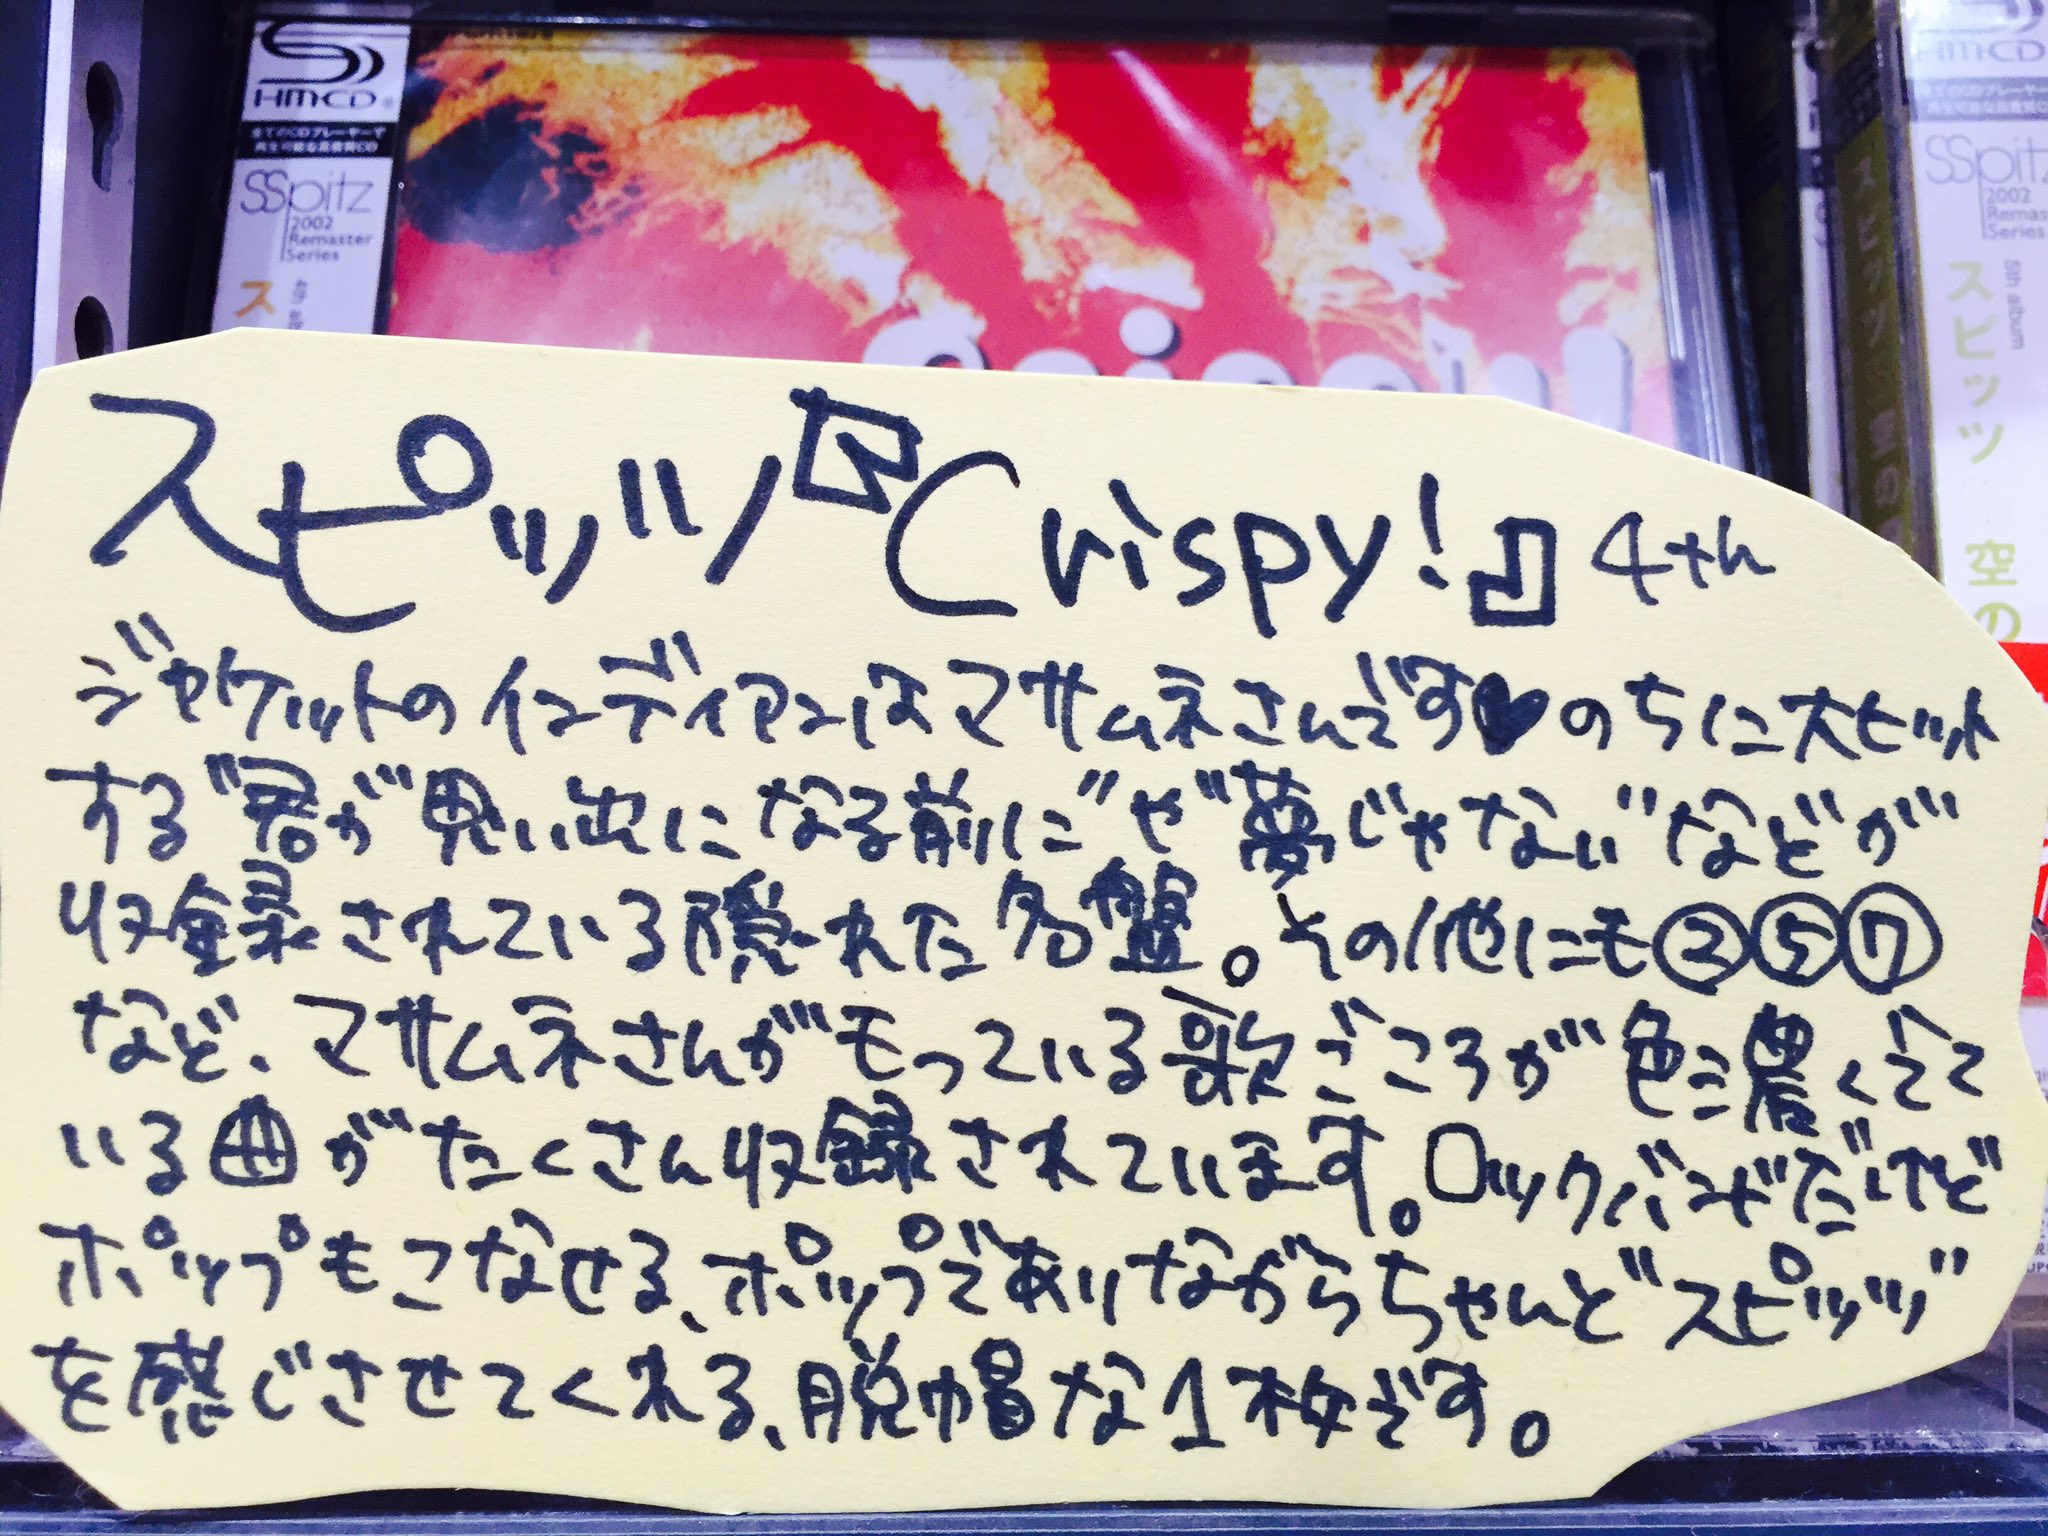 HMCD®
全てのCDプレーヤーで
再生可能な高音質CD
SSpitz
2002
Remaster
Series
ス
4th
HMCD
SSpitz
2002
Remaster
Series
5th album
スピッツ 空の
スピッツ『Crispy!』4th
ジャケットのインディアンはマサムネさんです♥のちに大ヒット
する"君が思い出になる前に"や"夢じゃない"などが
収録されている隠れた名盤。その他にモ②⑤⑦
など、マサムネさんがモっている歌ごころが色こ濃く出て
いる曲がたくさん収録されています。ロックバンドだけど
ポップもこなせる、ポップでありながらちゃんと"スピッツ"
を感じさせてくれる、脱帽な1枚です。